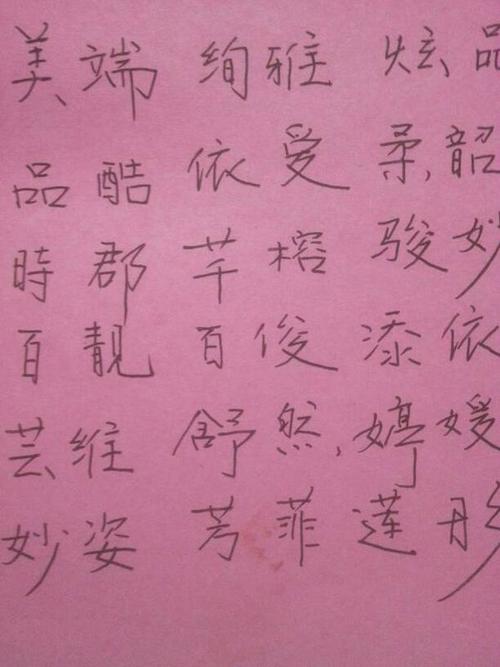 美端 绚雅 炫品
品酷 依爱 柔,韶
時郡 芊榕 骏妙
百靓 百俊 添依
芸维 舒然, 婷媛
妙姿 芳菲 莲彤